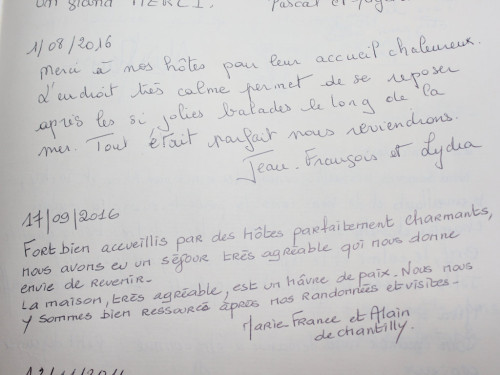 un grand MERCI.
Pascal et
1/08/2016
Merci à nos hôtes pour leur accueil chaleureux.
L'endroit très calme permet de se reposer
après les si jolies balades le long de la
mer. Tout était parfait nous reviendrons.
Jean-François et Lydia
17/09/2016
FORT bien accueillis par des hôtes parfaitement charmants,
nous avons eu un séjour très agréable qui nous donne
envie de revenir-
La maison, très agréable, est un hâvre de paix. Nous nous
y sommes bien ressourcé après nos randonnées et visites-
Marie-France et Alain
de chantilly.